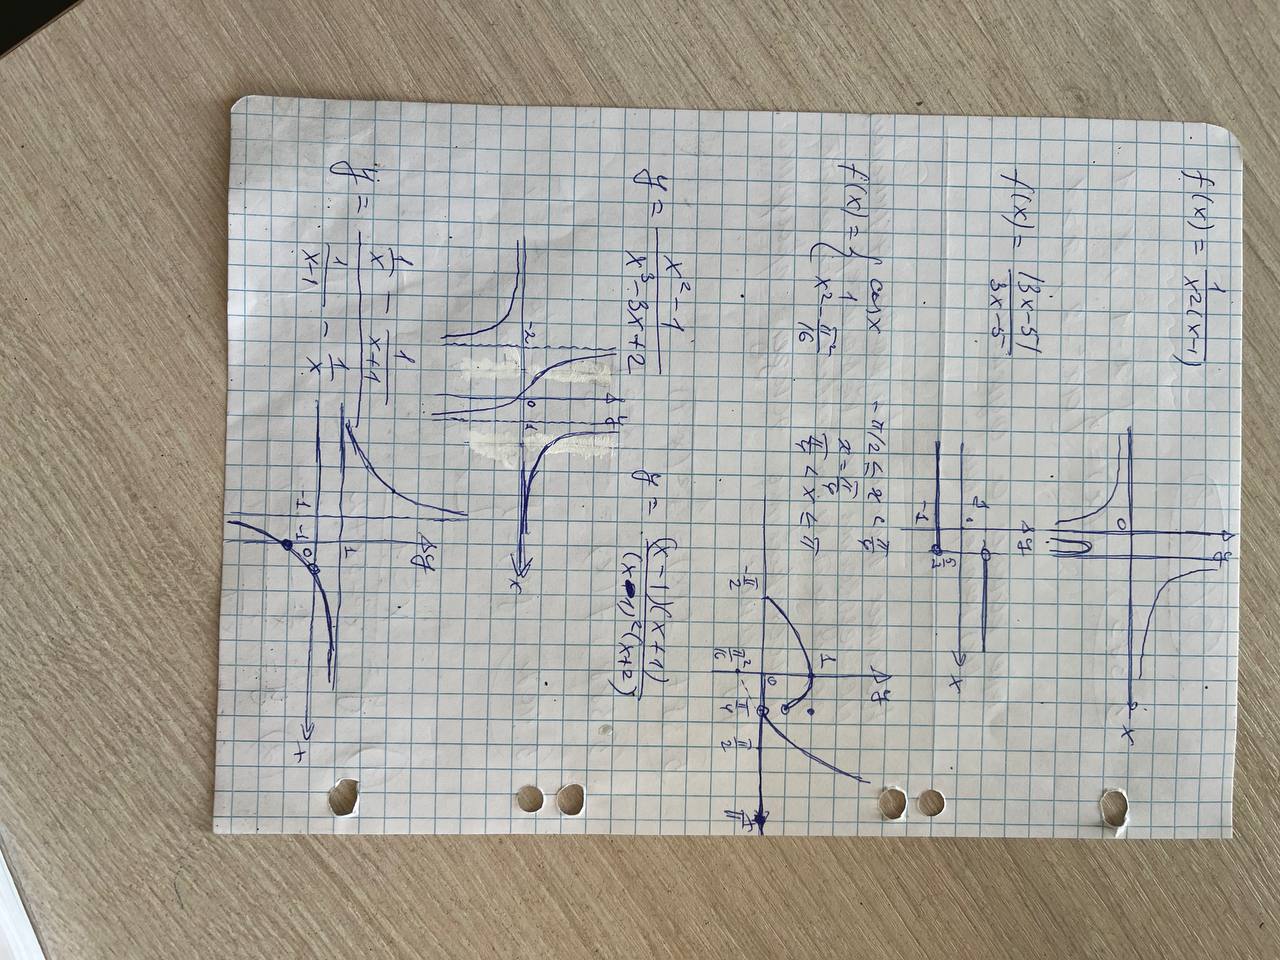 f(x) = 1/(x²(x-1))
y
0
x
f(x) = |3x-5|/(3x-5)
y
1
x
-1
f(x) = { cos x   -π/2 ≤ x < π/4
1   x = π/4
x² - π²/16   π/4 < x ≤ π
y
1
0
-π/2 π²/16 π/4 π/2 π
y = (x²-1)/(x³-3x+2)   y = (x-1)(x+1)/((x-1)²(x+2))
y
-2 0 1 x
y = (1/x - 1/(x+1))/(1/(x-1) - 1/x)
y
1
-1 -1 0 x